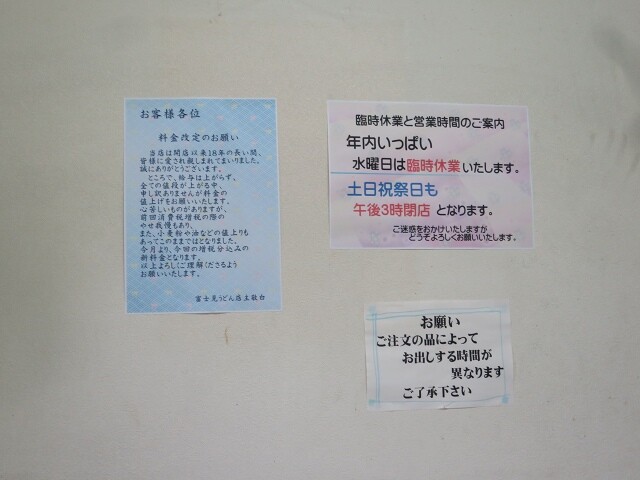 お客様各位
料金改定のお願い
当店は開店以来18年の長い間、
皆様に愛され親しまれてまいりました。
誠にありがとうございます。
ところで、給与は上がらず、
全ての値段が上がる中、
申し訳ありませんが料金の
値上げをお願いいたします。
心苦しいものがありますが、
前回消費税増税の際の
やせ我慢もあり、
また、小麦粉や油などの値上りも
あってこのままではとなりました。
今月より、今回の増税分込みの
新料金となります。
以上よろしくご理解くださるよう
お願いいたします。
富士見うどん店主敬白
臨時休業と営業時間のご案内
年内いっぱい
水曜日は臨時休業いたします。
土日祝祭日も
午後3時閉店 となります。
ご迷惑をおかけいたしますが
どうぞよろしくお願いいたします。
お願い
ご注文の品によって
お出しする時間が
異なります
ご了承下さい